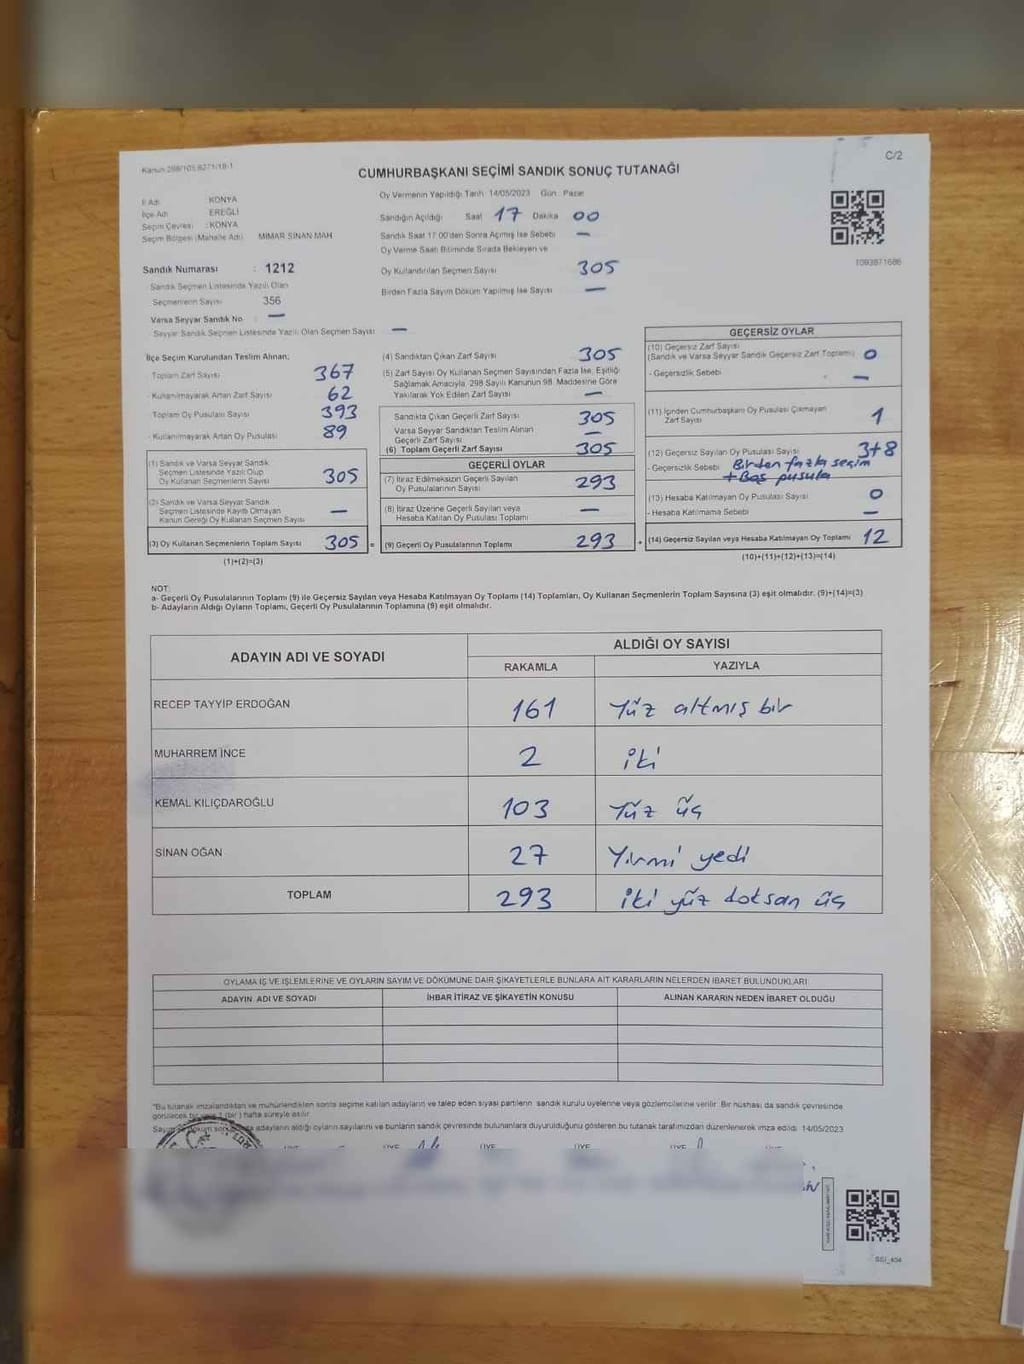 Kanun 298/105,6271/18-1
C/2
CUMHURBAŞKANI SEÇİMİ SANDIK SONUÇ TUTANAĞI
İl Adı : KONYA
İlçe Adı : EREĞLİ
Seçim Çevresi : KONYA
Seçim Bölgesi (Mahalle Adı) MİMAR SİNAN MAH
Sandık Numarası : 1212
Sandık Seçmen Listesinde Yazılı Olan
Seçmenlerin Sayısı 356
Varsa Seyyar Sandık No : —
Seyyar Sandık Seçmen Listesinde Yazılı Olan Seçmen Sayısı : —
Oy Vermenin Yapıldığı Tarih 14/05/2023 Gün : Pazar
Sandığın Açıldığı Saat 17 Dakika 00
Sandık Saat 17:00'den Sonra Açılmış İse Sebebi —
Oy Verme Saati Bitiminde Sırada Bekleyen ve
Oy Kullandırılan Seçmen Sayısı 305
Birden Fazla Sayım Döküm Yapılmış İse Sayısı —
İlçe Seçim Kurulundan Teslim Alınan;
- Toplam Zarf Sayısı 367
- Kullanılmayarak Artan Zarf Sayısı 62
- Toplam Oy Pusulası Sayısı 393
- Kullanılmayarak Artan Oy Pusulası 89
(1) Sandık ve Varsa Seyyar Sandık
Seçmen Listesinde Yazılı Olup
Oy Kullanan Seçmenlerin Sayısı 305
(2) Sandık ve Varsa Seyyar Sandık
Seçmen Listesinde Kayıtlı Olmayan
Kanun Gereği Oy Kullanan Seçmen Sayısı —
(3) Oy Kullanan Seçmenlerin Toplam Sayısı 305 =
(1)+(2)=(3)
(4) Sandıktan Çıkan Zarf Sayısı 305
(5) Zarf Sayısı Oy Kullanan Seçmen Sayısından Fazla İse, Eşitliği
Sağlamak Amacıyla, 298 Sayılı Kanunun 98. Maddesine Göre
Yakılarak Yok Edilen Zarf Sayısı —
Sandıkta Çıkan Geçerli Zarf Sayısı 305
Varsa Seyyar Sandıktan Teslim Alınan
Geçerli Zarf Sayısı —
(6) Toplam Geçerli Zarf Sayısı 305
GEÇERLİ OYLAR
(7) İtiraz Edilmeksizin Geçerli Sayılan
Oy Pusulalarının Sayısı 293
(8) İtiraz Üzerine Geçerli Sayılan veya
Hesaba Katılan Oy Pusulası Toplamı —
(9) Geçerli Oy Pusulalarının Toplamı 293 +
GEÇERSİZ OYLAR
(10) Geçersiz Zarf Sayısı
(Sandık ve Varsa Seyyar Sandık Geçersiz Zarf Toplamı) 0
- Geçersizlik Sebebi —
(11) İçinden Cumhurbaşkanı Oy Pusulası Çıkmayan
Zarf Sayısı 1
(12) Geçersiz Sayılan Oy Pusulası Sayısı 3+8
- Geçersizlik Sebebi Birden fazla seçim
+Boş pusula
(13) Hesaba Katılmayan Oy Pusulası Sayısı 0
- Hesaba Katılmama Sebebi —
(14) Geçersiz Sayılan veya Hesaba Katılmayan Oy Toplamı 12
(10)+(11)+(12)+(13)=(14)
NOT:
a- Geçerli Oy Pusulalarının Toplamı (9) ile Geçersiz Sayılan veya Hesaba Katılmayan Oy Toplamı (14) Toplamları, Oy Kullanan Seçmenlerin Toplam Sayısına (3) eşit olmalıdır. (9)+(14)=(3)
b- Adayların Aldığı Oyların Toplamı, Geçerli Oy Pusulalarının Toplamına (9) eşit olmalıdır.
ADAYIN ADI VE SOYADI ALDIĞI OY SAYISI
RAKAMLA YAZIYLA
RECEP TAYYİP ERDOĞAN 161 Yüz altmış bir
MUHARREM İNCE 2 iki
KEMAL KILIÇDAROĞLU 103 Yüz üç
SİNAN OĞAN 27 Yirmi yedi
TOPLAM 293 iki yüz doksan üç
OYLAMA İŞ VE İŞLEMLERİNE VE OYLARIN SAYIM VE DÖKÜMÜNE DAİR ŞİKAYETLERLE BUNLARA AİT KARARLARIN NELERDEN İBARET BULUNDUKLARI
ADAYIN ADI VE SOYADI İHBAR İTİRAZ VE ŞİKAYETİN KONUSU ALINAN KARARIN NEDEN İBARET OLDUĞU
"Bu tutanak imzalandıktan ve mühürlendikten sonra seçime katılan adayların ve talep eden siyasi partilerin sandık kurulu üyelerine veya gözlemcilerine verilir. Bir nüshası da sandık çevresinde
görülecek bir yere 1 (bir) hafta süreyle asılır
adayların aldığı oyların sayılarını ve bunların sandık çevresinde bulunanlara duyurulduğunu gösteren bu tutanak tarafımızdan düzenlenerek imza edildi. 14/05/2023
ÜYE ÜYE ÜYE ÜYE